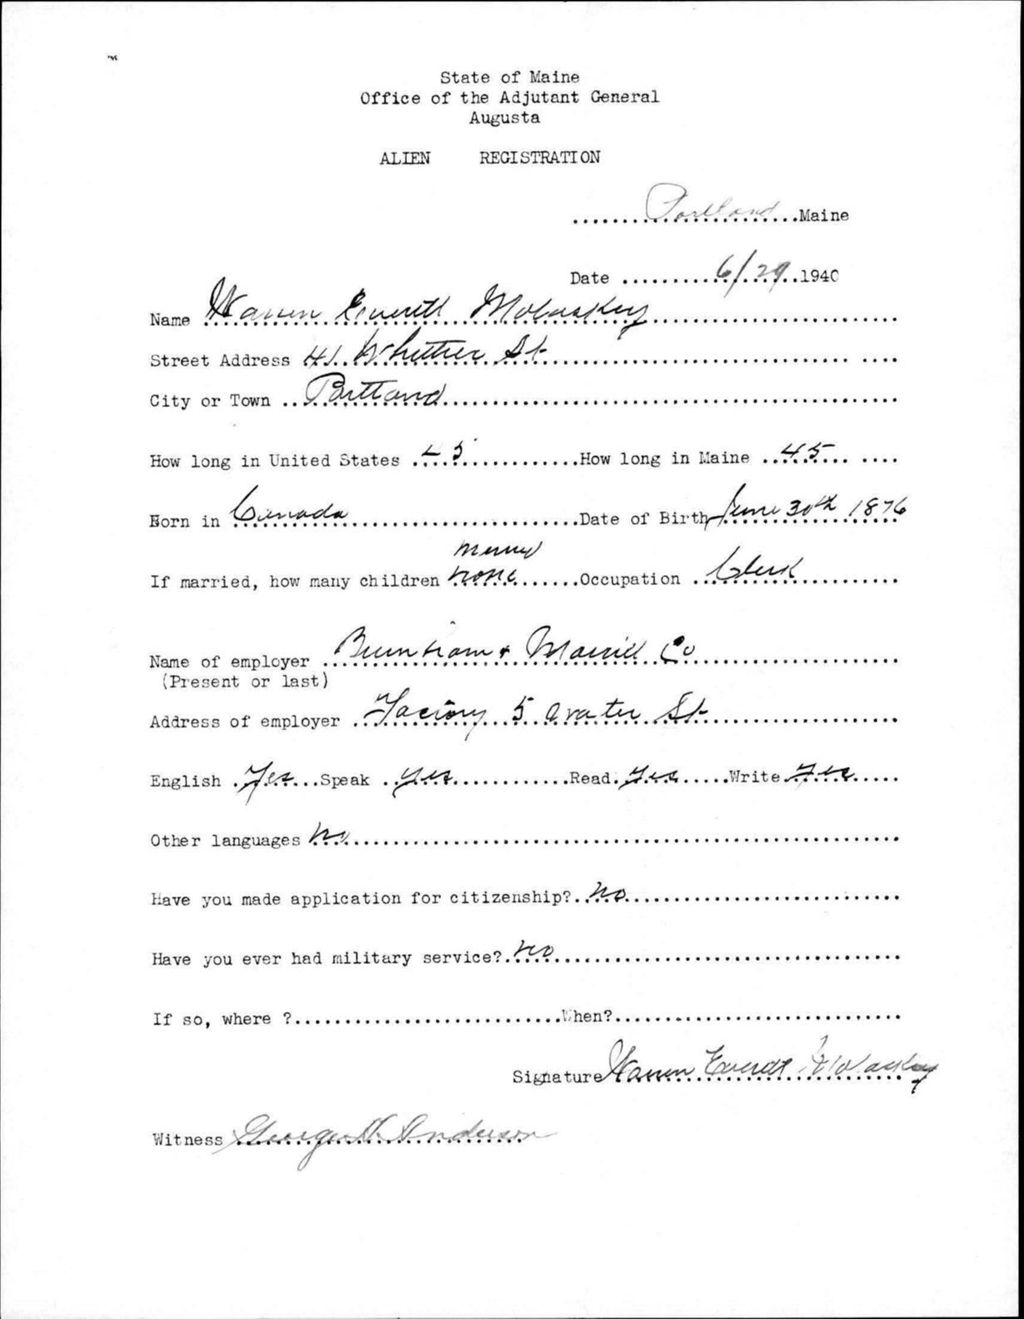 State of Maine
Office of the Adjutant General
Augusta
ALIEN REGISTRATION
........Portland........Maine
Date ..........6/29..1940
Name Warren Everett Molaskey
Street Address 41 Whittier St
City or Town ..Portland
How long in United States ..45..............How long in Maine ..45... ....
Born in Canada..........................Date of Birth June 30th 1876
married
If married, how many children none.......Occupation ..Clerk
Name of employer Burnham & Morrill Co
(Present or last)
Address of employer .Factory 5 Water St
English .Yes...Speak .yes.............Read.yes......Write.yes.....
Other languages no
Have you made application for citizenship?..no
Have you ever had military service?.no
If so, where ?...........................When?..............................
Signature Warren Everett Molaskey
Witness George H. Anderson